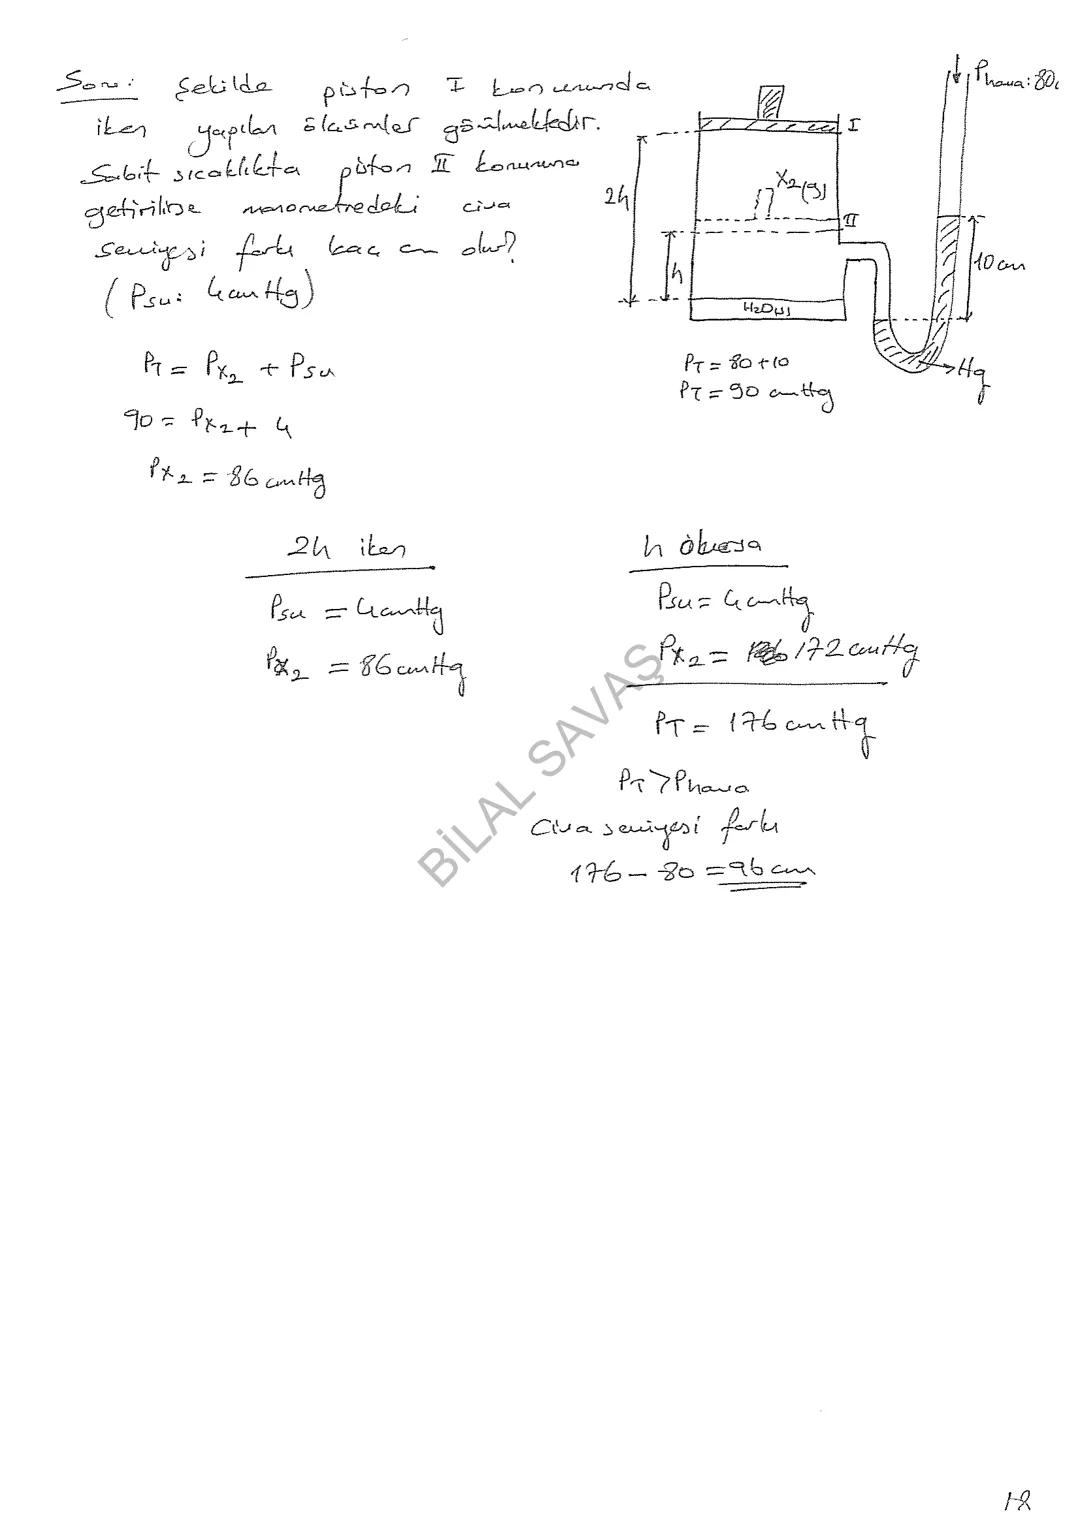 Soru: Şekilde piston I konumunda
iken yapılan ölçümler görülmektedir.
Sabit sıcaklıkta piston II konumuna
getirilirse manometredeki civa
seviyesi farkı kaç cm olur?
(Psu: 4cmHg)
Phava: 80
I
2h
X2(g)
II
h
10cm
H2O(s)
Hg
PT = 80+10
PT = 90 cmHg
PT = PX2 + Psu
90 = PX2 + 4
PX2 = 86 cmHg
2h iken
Psu = 4cmHg
PX2 = 86cmHg
h olursa
Psu = 4cmHg
PX2 = 172 cmHg
PT = 176 cmHg
PT > Phava
Civa seviyesi farkı
176 - 80 = 96 cm
BİLAL SAVAŞ